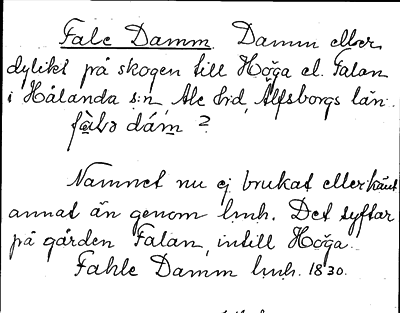 Fale Damm Damm eller
dylikt på skogen till Höga el. Falan
i Hålanda s:n, Ale hd, Älfsborgs län.
fà̀lə dám ?
Namnet nu ej brukat eller känt
annat än genom lmh. Det syftar
på gården Falan, intill Höga.
Fahle Damm lmh. 1830.